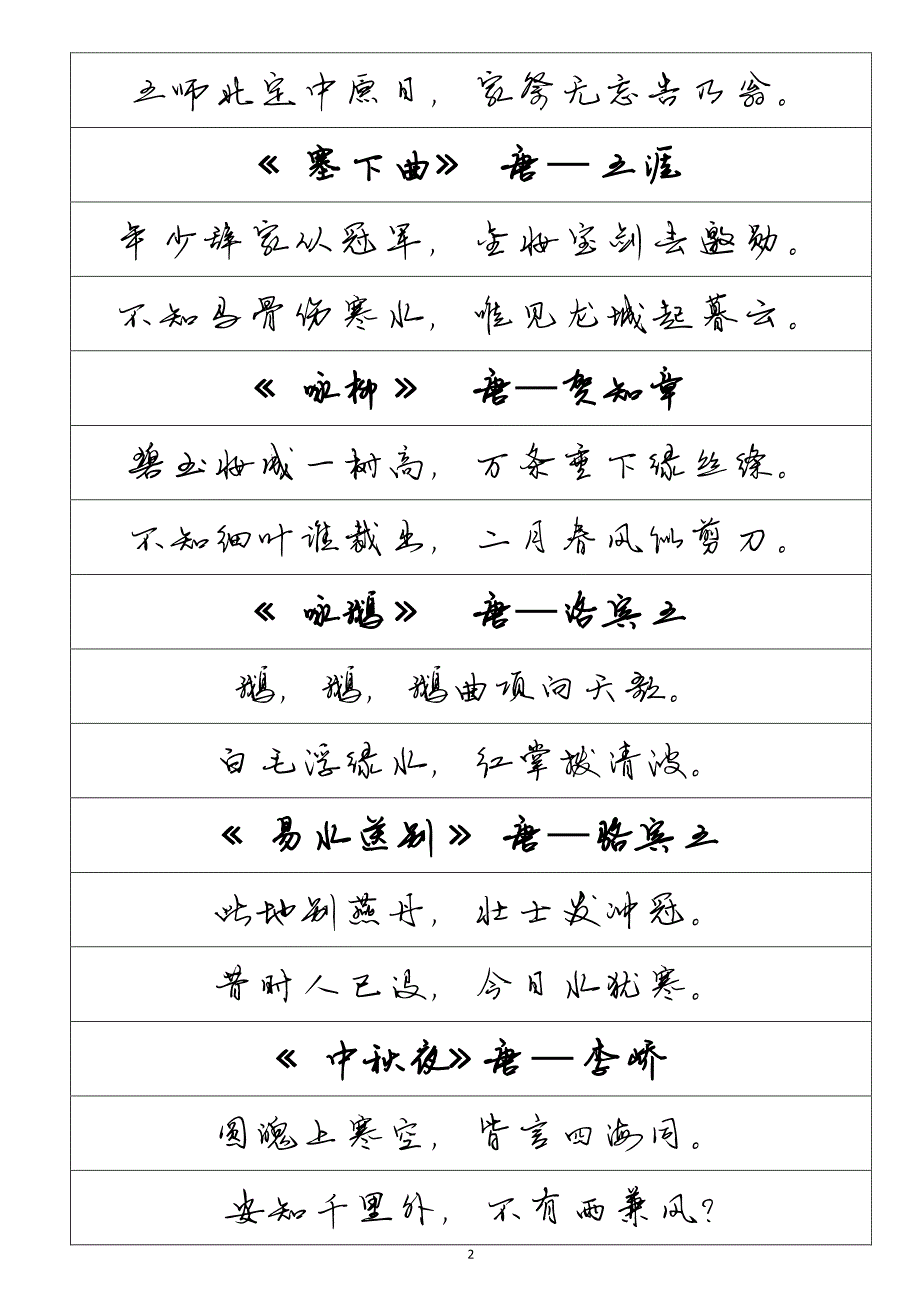 王师北定中原日，家祭无忘告乃翁。
《 塞下曲》 唐一王涯
年少辞家从冠军，金妆宝剑去邀勋。
不知马骨伤寒水，唯见龙城起暮云。
《 咏柳》 唐一贺知章
碧玉妆成一树高，万条垂下绿丝绦。
不知细叶谁裁出，二月春风似剪刀。
《 咏鹅》 唐一洛宾王
鹅，鹅，鹅曲项向天歌。
白毛浮绿水，红掌拨清波。
《 易水送别》唐一骆宾王
此地别燕丹，壮士发冲冠。
昔时人已没，今日水犹寒。
《 中秋夜》唐一李峤
圆魄上寒空，皆言四海同。
安知千里外，不有雨兼风？
2